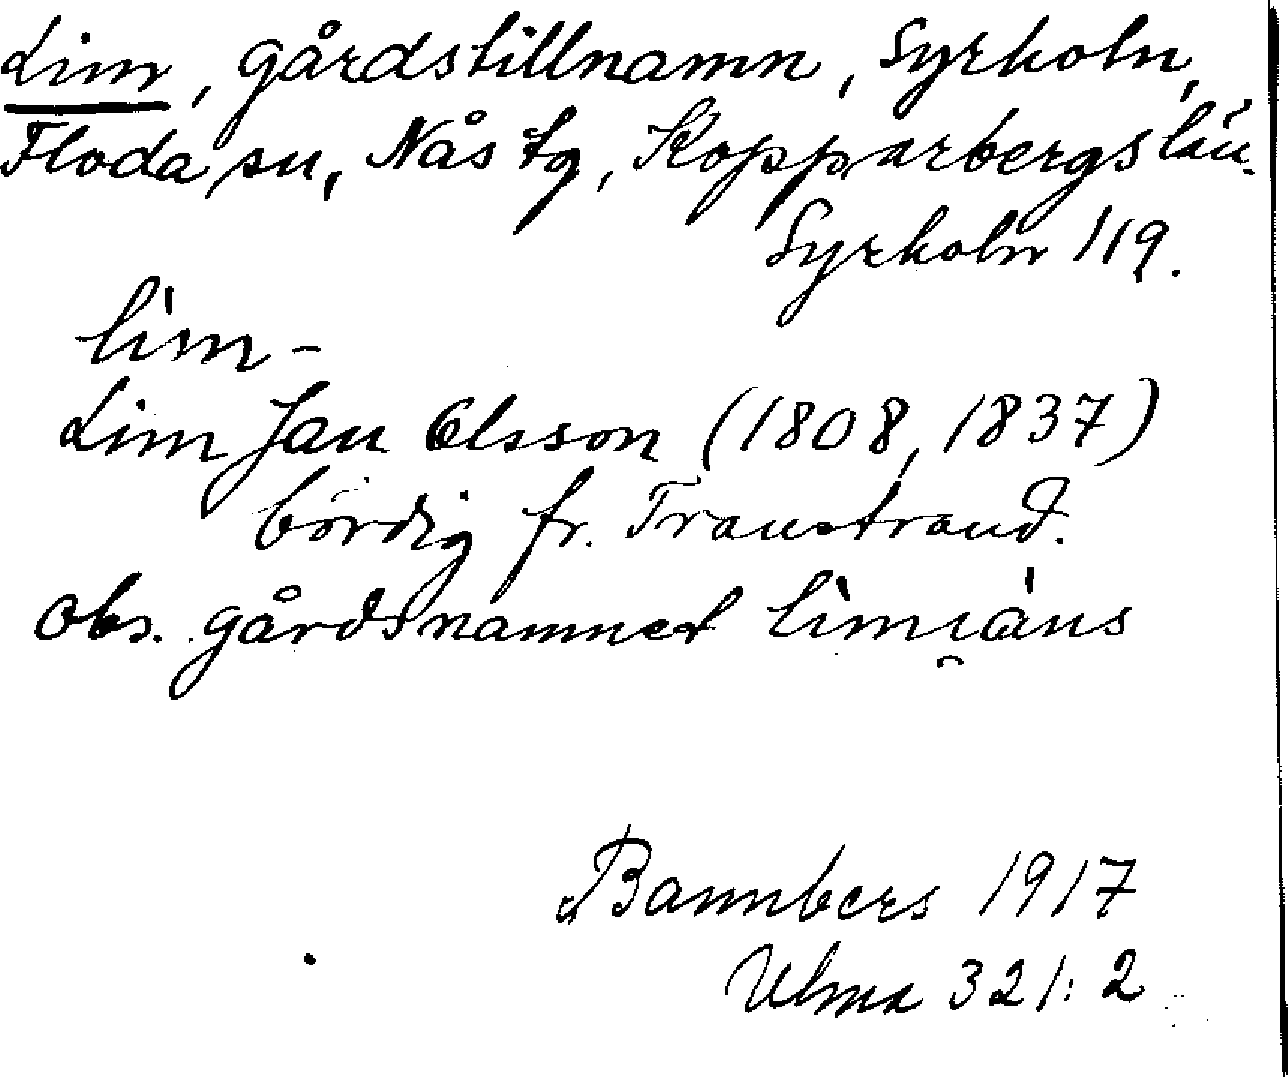 Lim, gårdstillnamn, Syrholn,
Floda sn, Nås tg, Kopparbergs län.
Syrholn 119.
lìm-
Lim Jan Olsson (1808, 1837)
bördig fr. Transtrand.
Obs. gårdsnamnet lìmi̯àns
Bannbers 1917
Ulma 321:2